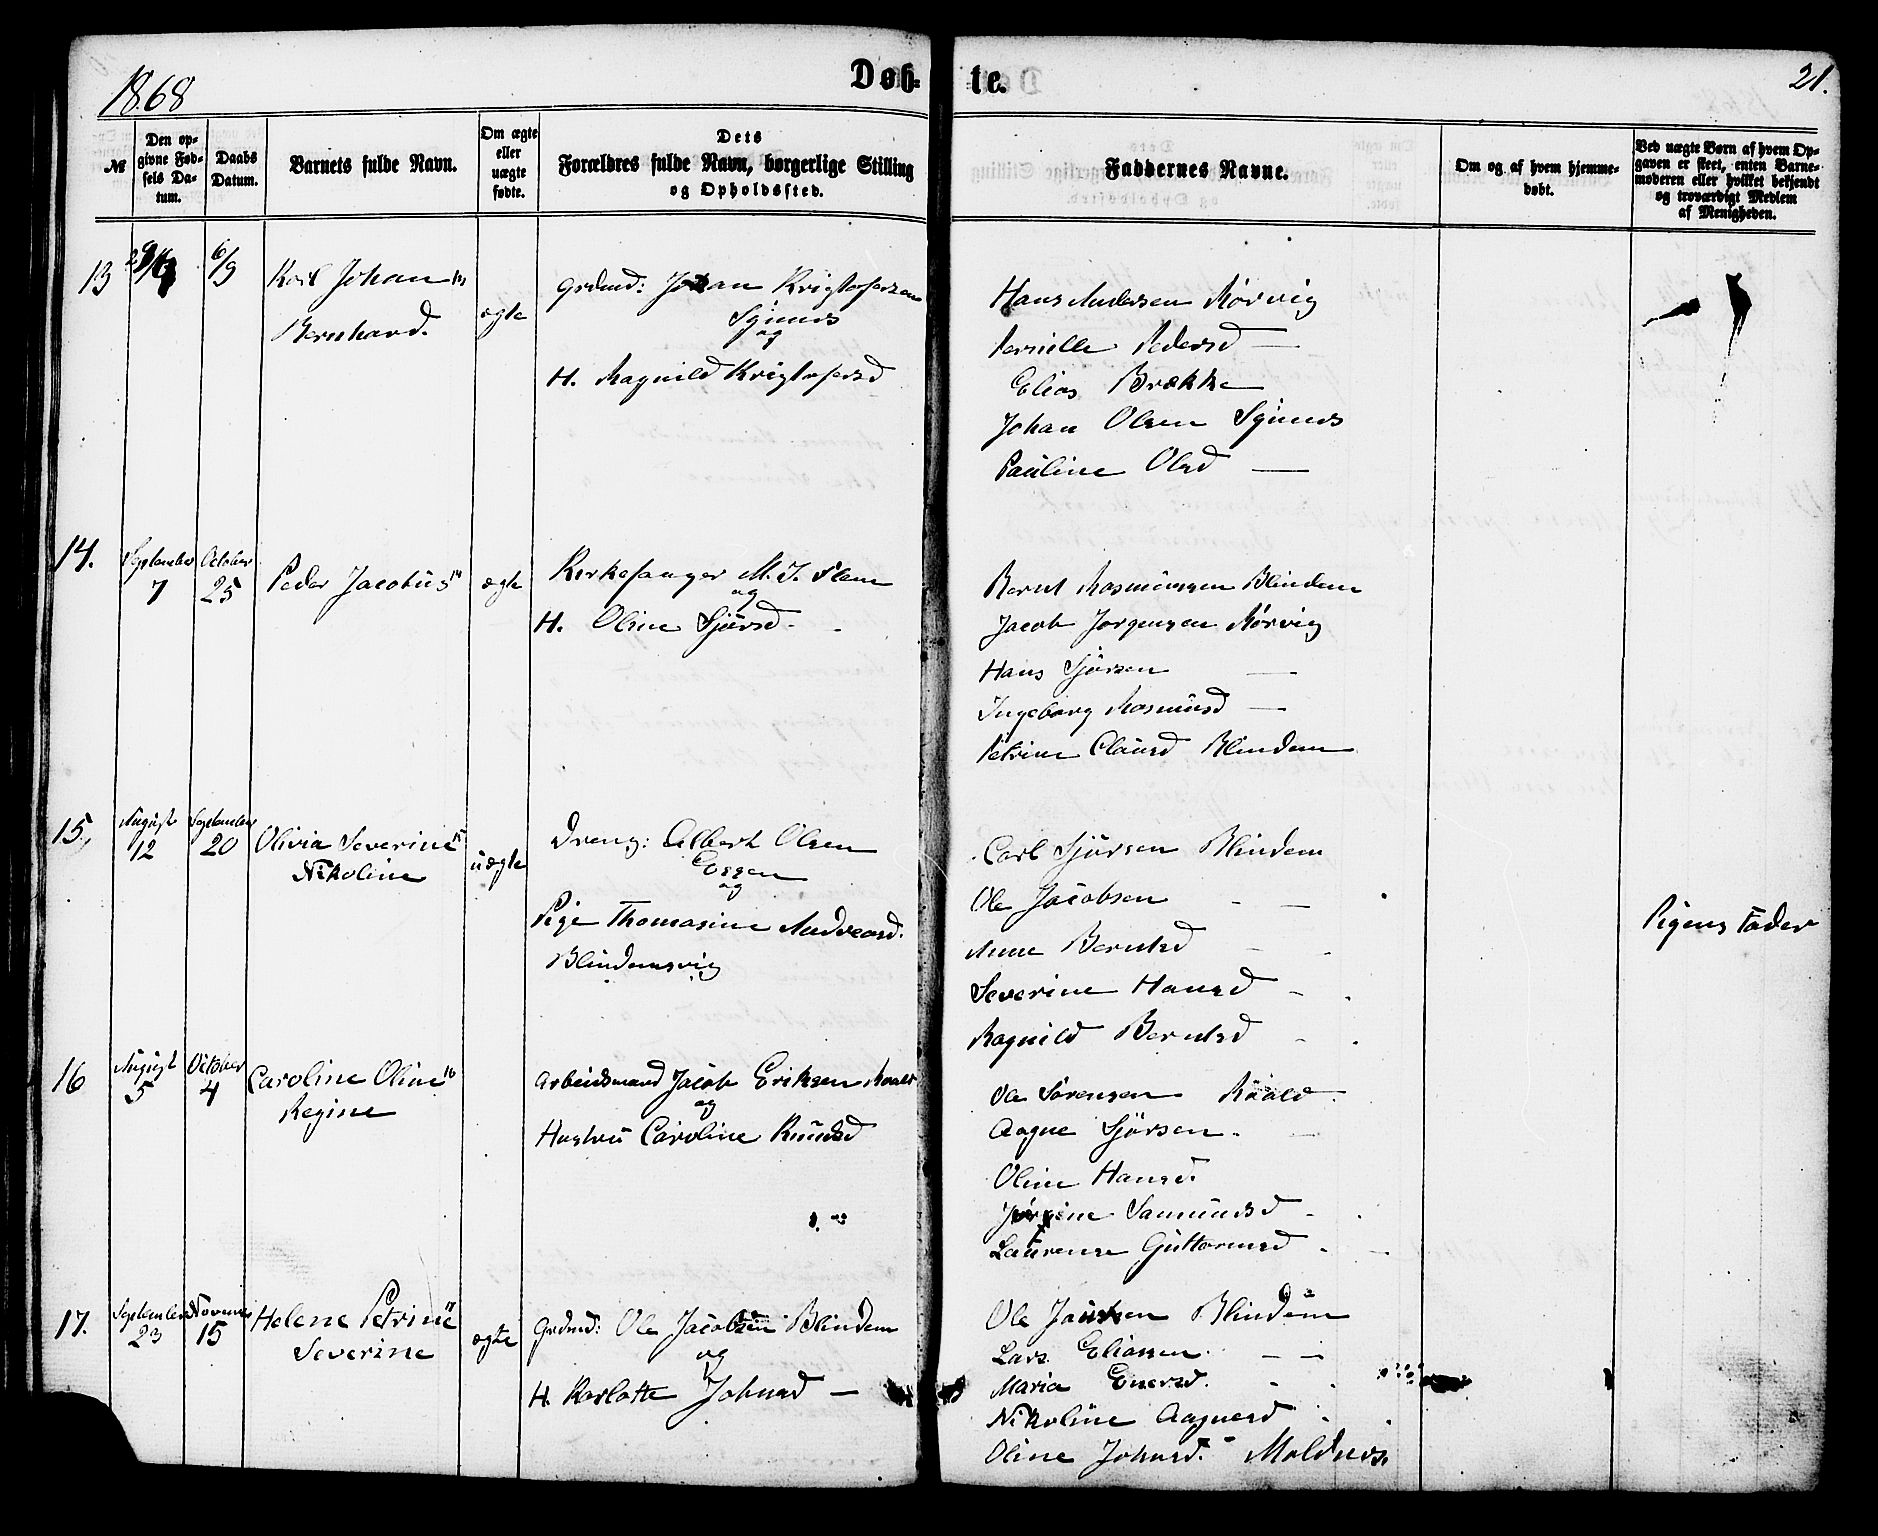 1868
Døb-
te.
21.
№
Den op-
givne Fød-
sels Da-
tum.
Daabs
Datum.
Barnets fulde Navn.
Om ægte
eller
uægte
fødte.
Dets
Forældres fulde Navn, borgerlige Stilling
og Opholdssted.
Faddernes Navne.
Om og af hvem hjemme-
døbt.
Ved uægte Børn af hvem Op-
gaven er skeet, enten Barne-
moderen eller hvilket bekjendt
og troværdigt Medlem
af Menigheden.
13
6/9
Karl Johan 13
Bernhard.
ægte
Grdmd: Johan Kristofersen
Sginnes
og
H. Ragnild Kristofersd
Hans Andersen Rørvig
Pernille Pedersd —
Elias Brække
Johan Olsen Sginnes
Pauline Olsd —
14.
September
7
October
25
Peder Jacobus 14
ægte
Kirkesanger M. J. Slem
og
H. Oline Sjursd
Bernt Rasmussen Blindem
Jacob Jørgensen Rørvig
Hans Sjursen —
Ingeborg Rasmusd —
Petrine Clausd Blindem
15.
August
12
September
20
Olivia Severine 15
Nikoline
uægte
Dreng: Albert Olsen
Eggen
og
Pige Thomasine Andreasd.
Blindemsvig
Carl Sjursen Blindem
Ole Jacobsen - —
Anne Berntsd -
Severine Hansd -
Ragnild Berntsd -
Pigens Fader
16
August
5
October
4
Caroline Oline 16
Regine
Arbeidsmand Jacob Eriksen Roald
og
Hustru Caroline Knudsd
Ole Sørensen Roald
Aagne Sjursen. —
Oline Hansd.
Jørgine Samundsd -
Laurense Guttormsd - —
17.
September
23
November
15
Helene Petrine 17
Severine
ægte
Grdmd: Ole Jacobsen Blindem
og
H. Karlotte Johnsd —
Ole Blindem
Lars Eliassen. — —
Maria Enersd. -
Nikoline Aagnesd
Oline Johnsd. Moldnes.